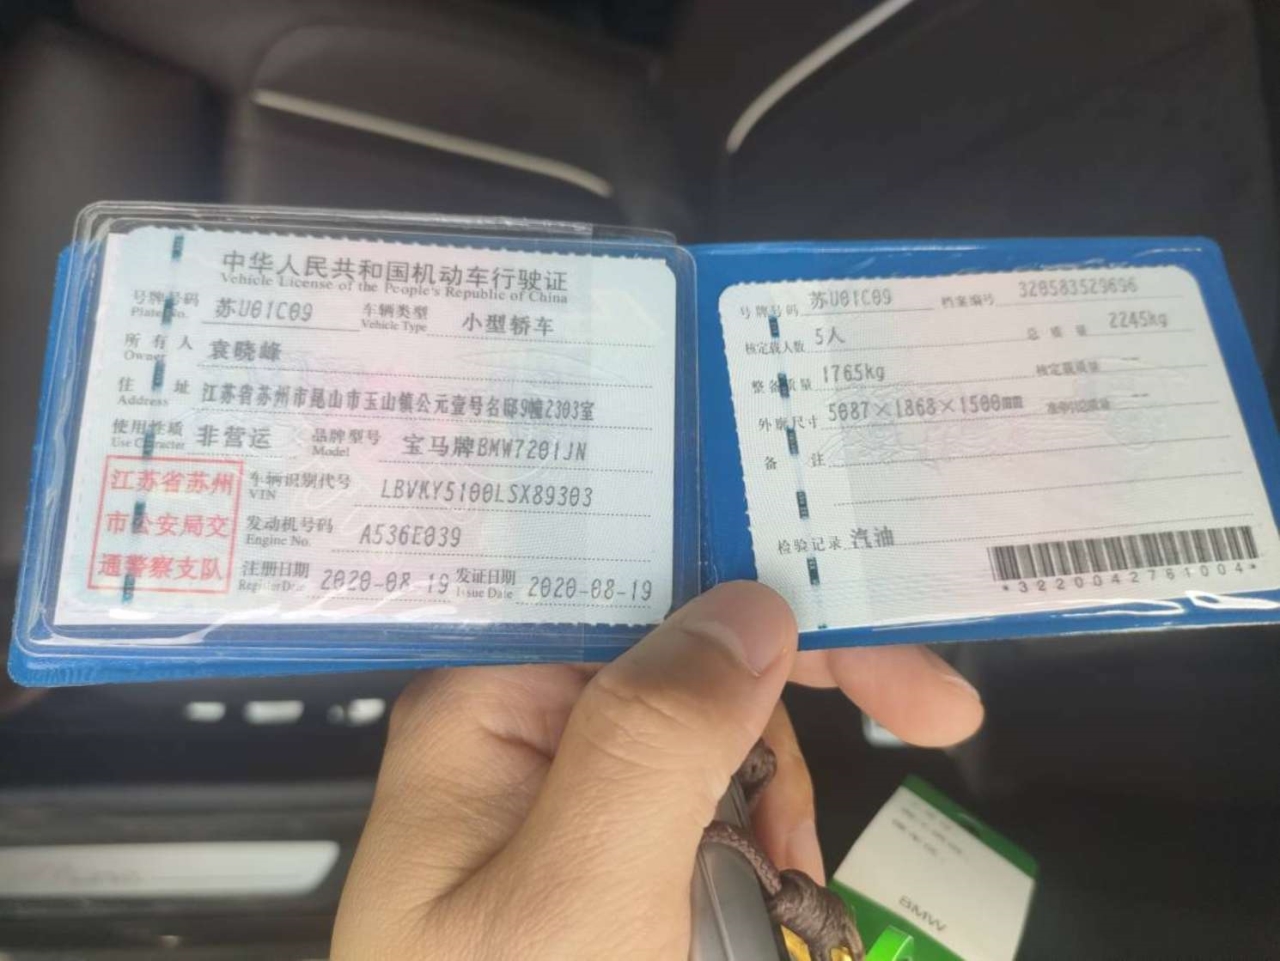 中华人民共和国机动车行驶证
Vehicle License of the People's Republic of China
号牌号码 苏U01C09 车辆类型 小型轿车
Plate No. Vehicle Type
所有人 袁晓峰
Owner
住址 江苏省苏州市昆山市玉山镇公元壹号名邸9幢2303室
Address
使用性质 非营运 品牌型号 宝马牌BMW7201JN
Use Character Model
江苏省苏州
市公安局交
通警察支队
车辆识别代号 LBVKY5100LSX89303
VIN
发动机号码 A536E039
Engine No.
注册日期 2020-08-19 发证日期 2020-08-19
Register Date Issue Date
号牌号码 苏U01C09 档案编号 320583529696
核定载人数 5人 总质量 2245kg
整备质量 1765kg 核定载质量 --
外廓尺寸 5087×1868×1500mm 准牵引总质量 --
备注
检验记录 汽油
*3220042761004*
BMW